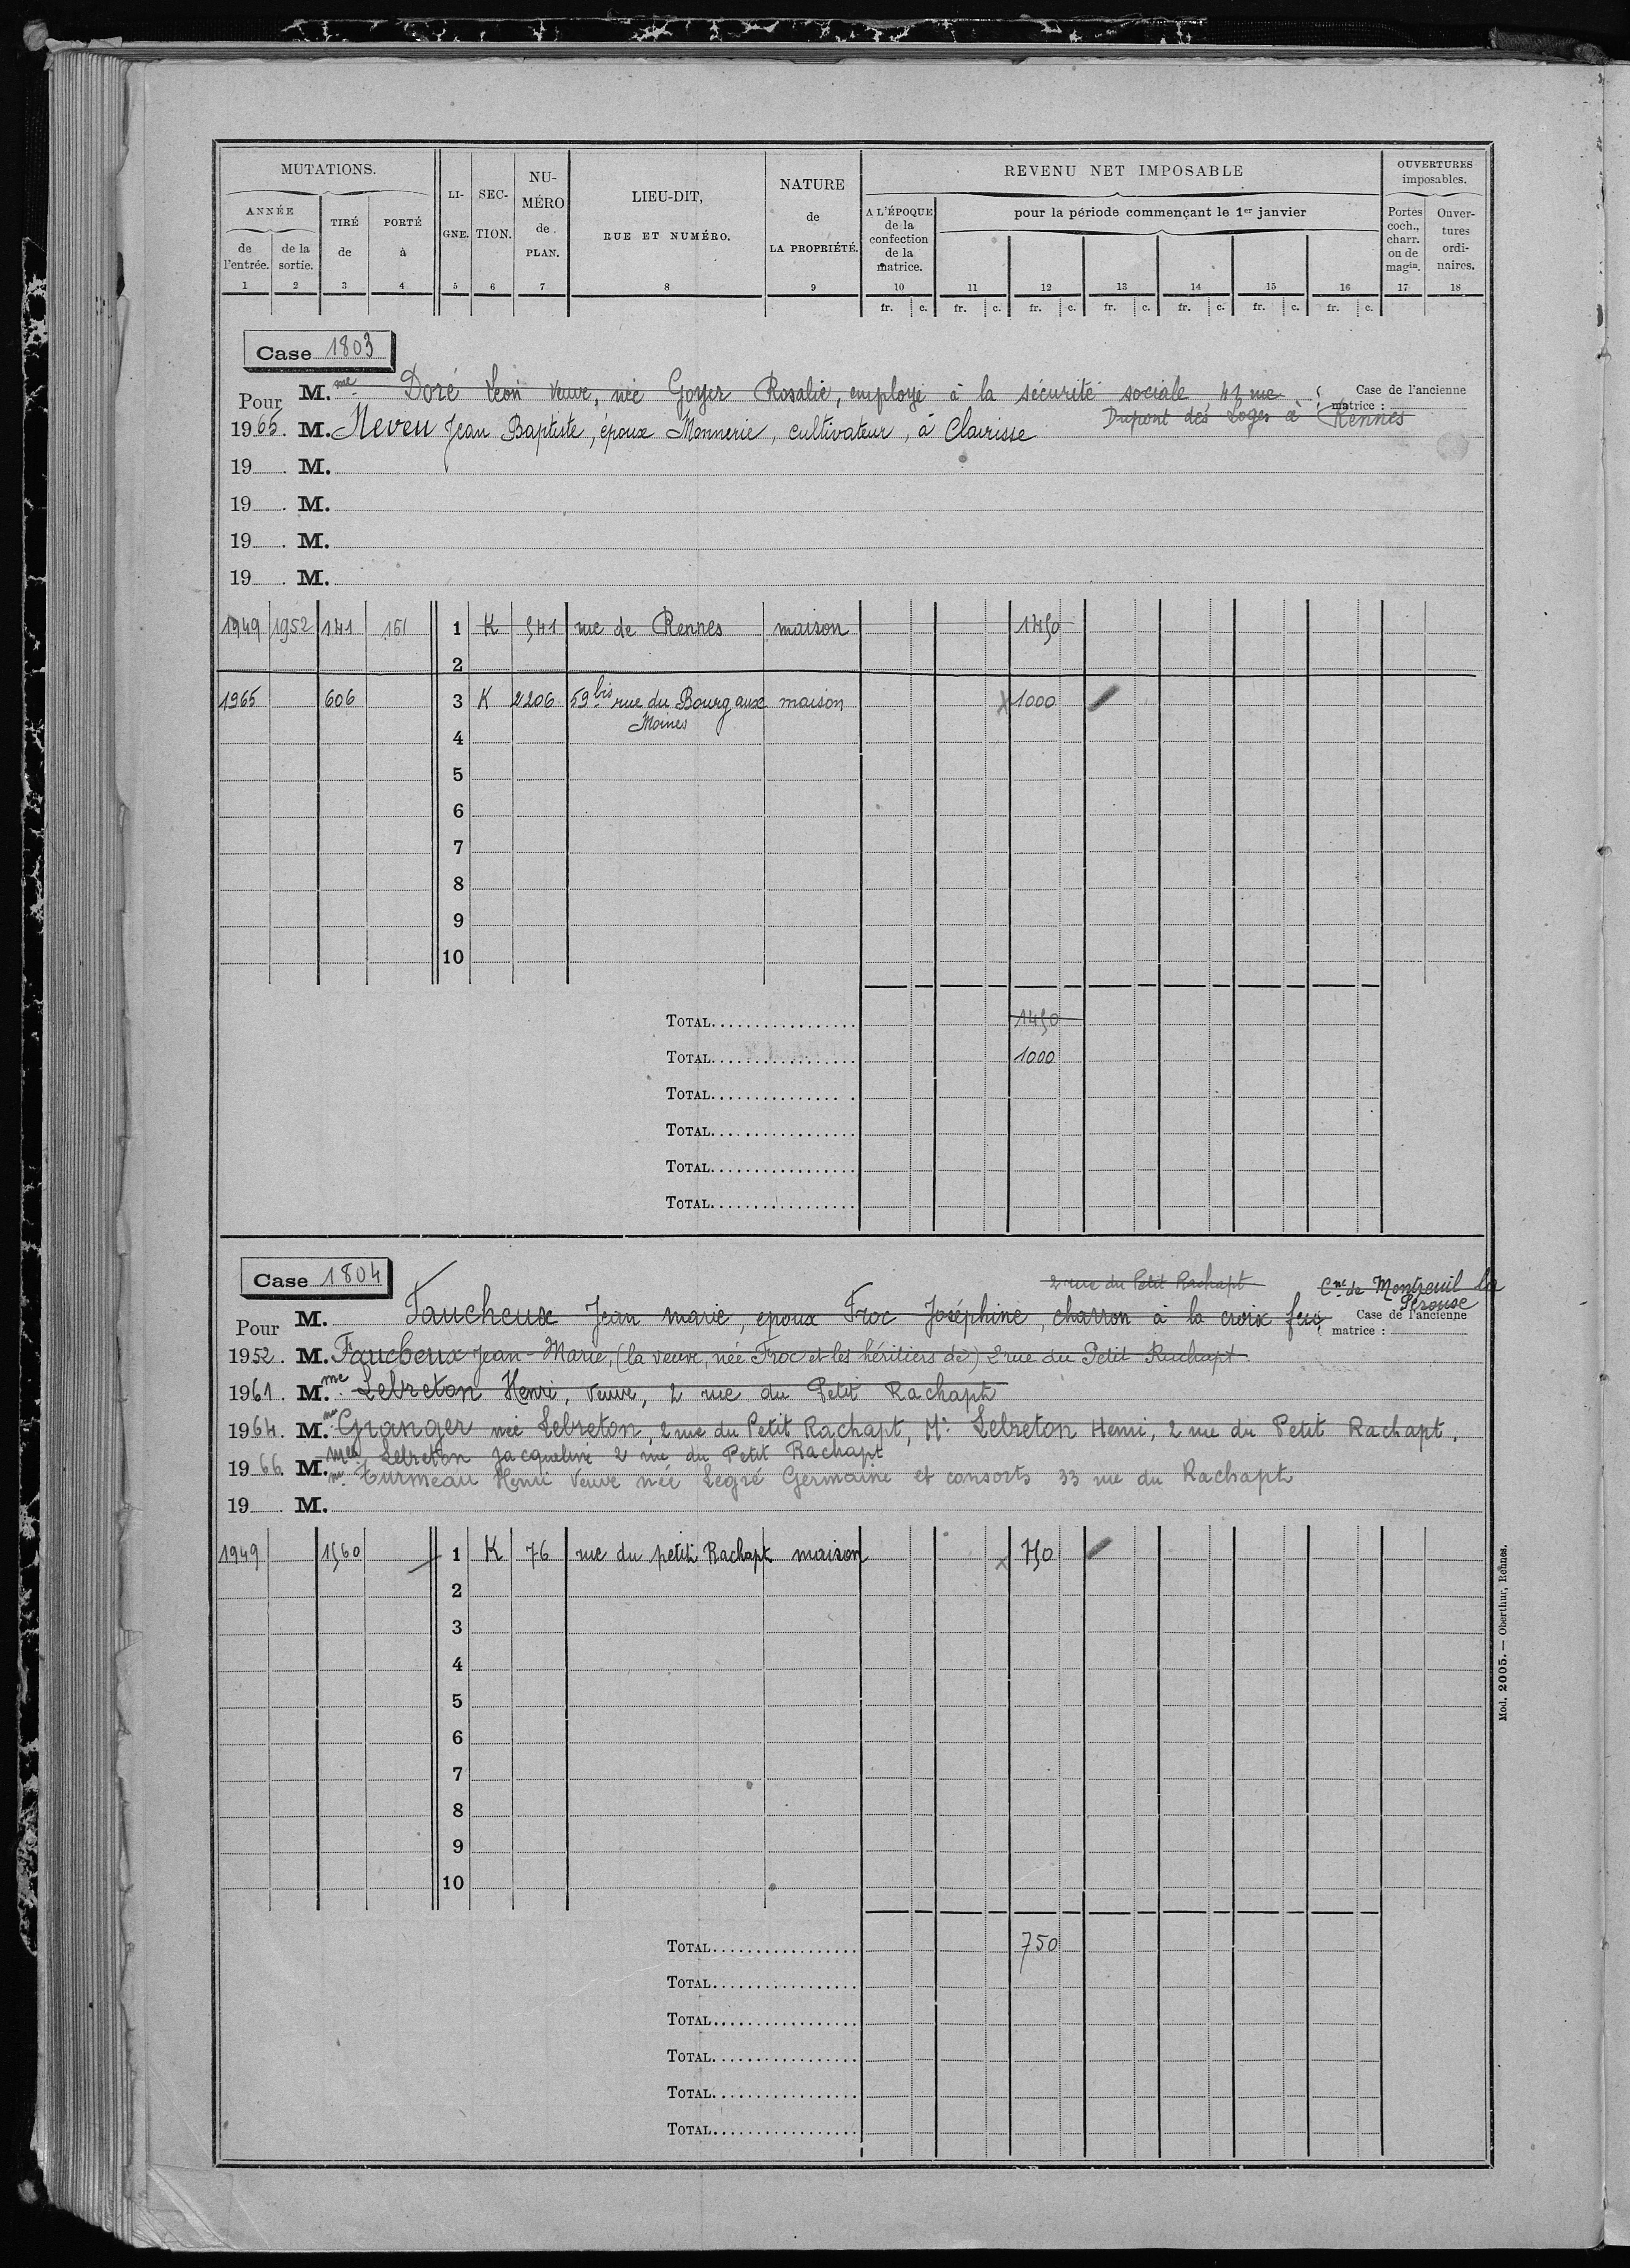 MUTATIONS.
ANNÉE
de l'entrée.
de la sortie.
TIRÉ de
PORTÉ à
LI-GNE.
SEC-TION.
NU-MÉRO de PLAN.
LIEU-DIT,
RUE ET NUMÉRO.
NATURE de LA PROPRIÉTÉ.
REVENU NET IMPOSABLE
A L'ÉPOQUE de la confection de la matrice.
pour la période commençant le 1er janvier
OUVERTURES imposables.
Portes coch., charr. ou de magin.
Ouver-tures ordi-naires.
1 2 3 4 5 6 7 8 9 10 11 12 13 14 15 16 17 18
fr. c. fr. c. fr. c. fr. c. fr. c. fr. c. fr. c.
Case 1803
Pour M.me Doré Léon Veuve, née Goyer Rosalie, employé à la sécurité sociale, 41 rue
Case de l'ancienne matrice :
Dupont des Loges à Rennes
1965. M. Neveu Jean Baptiste, époux Monnerie, cultivateur, à Clairisse
19 . M.
19 . M.
19 . M.
19 . M.
1949 1952 141 151 1 K 541 rue de Rennes maison 1450
2
1965 606 3 K 2206 59 bis rue du Bourg aux maison 1000
Moines
4
5
6
7
8
9
10
TOTAL 1450
TOTAL 1000
TOTAL
TOTAL
TOTAL
TOTAL
Case 1804
2 rue du Petit Rachapt
Cne de Montreuil la Pérouse
Pour M. Faucheux Jean marie, époux Froc Joséphine, charron à la croix
Case de l'ancienne matrice :
1952. M. Faucheux Jean-Marie, (la veuve, née Froc et les héritiers de) 2 rue du Petit Rachapt
1961. M.me Lebreton Henri, Veuve, 2 rue du Petit Rachapt
1964. M.me Granger née Lebreton, 2 rue du Petit Rachapt, Mr Lebreton Henri, 2 rue du Petit Rachapt.
1966. M. Lebreton Jacqueline 2 rue du Petit Rachapt
Turmeau Henri Veuve née Legré Germaine et consorts 33 rue du Rachapt
19 . M.
1949 1560 1 K 76 rue du petit Rachapt maison 750
2
3
4
5
6
7
8
9
10
TOTAL 750
TOTAL
TOTAL
TOTAL
TOTAL
TOTAL
Mod. 2005. — Oberthur, Rennes.